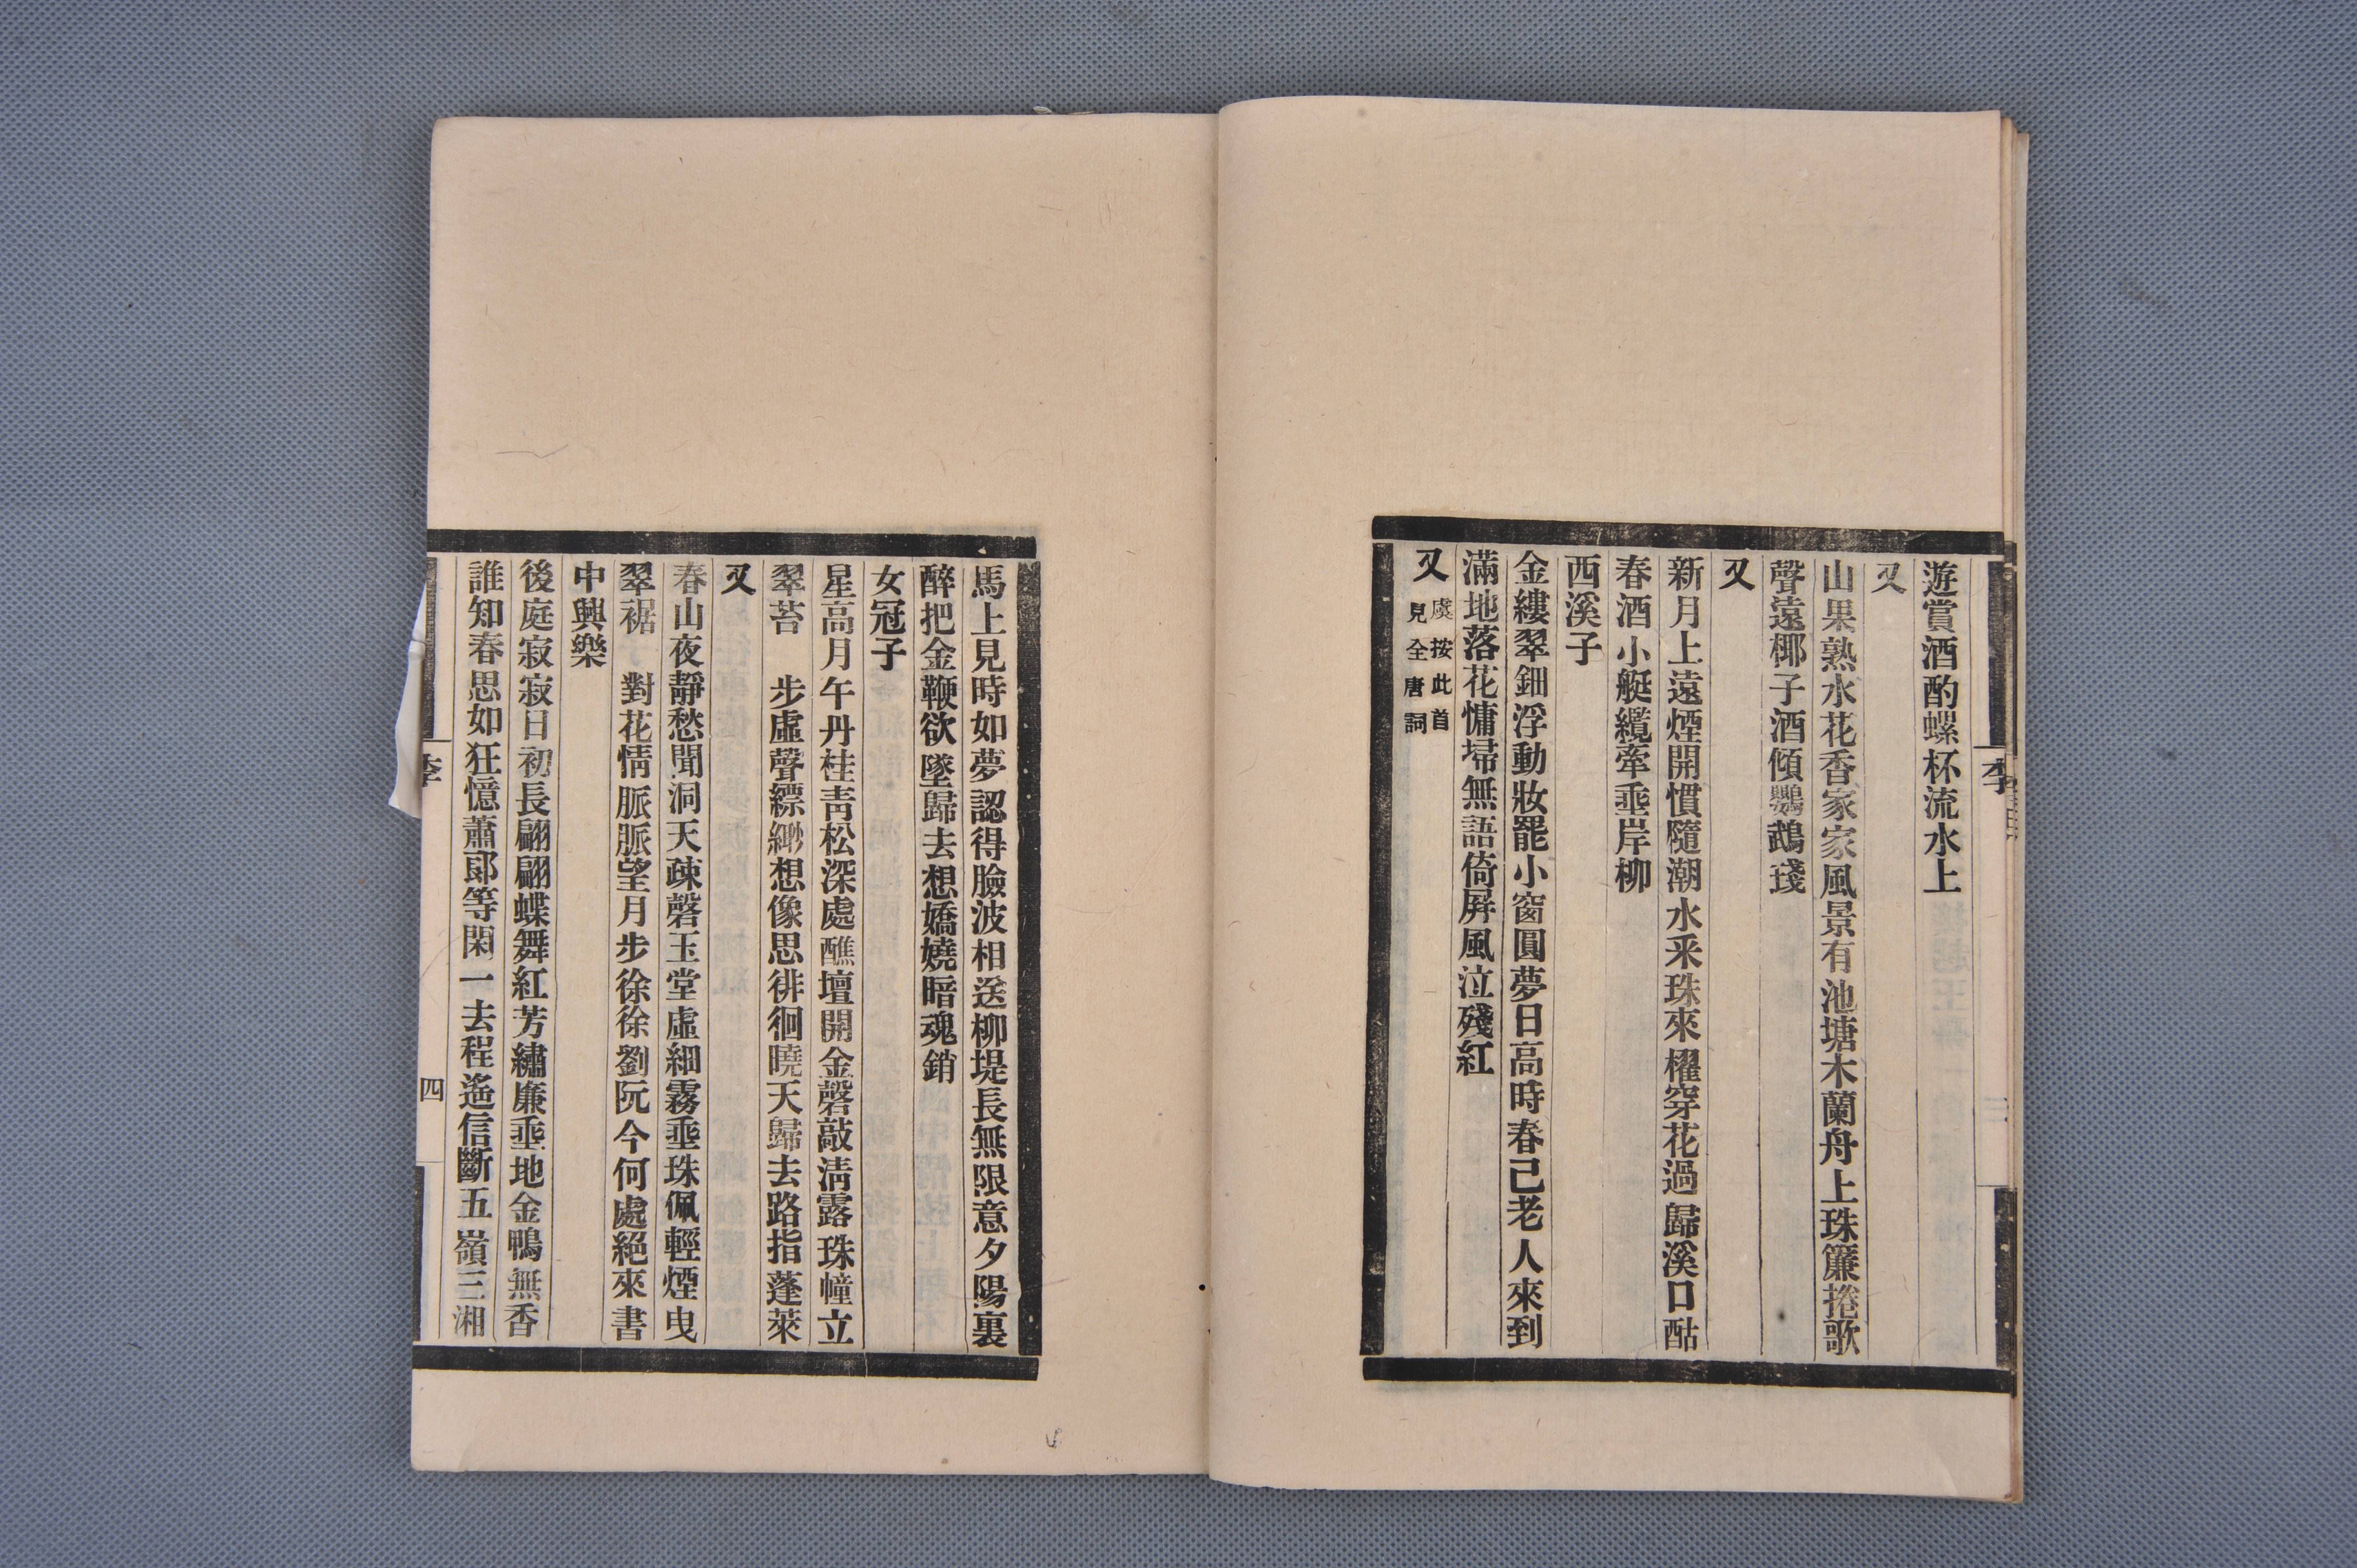 遊賞酒酌螺杯流水上
又
山果熟水花香家家風景有池塘木蘭舟上珠簾捲歌
聲遠椰子酒傾鸚鵡琖
又
新月上遠煙開慣隨潮水采珠來櫂穿花過歸溪口酤
春酒小艇纜牽垂岸柳
西溪子
金縷翠鈿浮動妝罷小窗圓夢日高時春已老人來到
滿地落花慵埽無語倚屏風泣殘紅
又 虞按此首
見全唐詞
馬上見時如夢認得臉波相送柳堤長無限意夕陽裏
醉把金鞭欲墜歸去想嬌嬈暗魂銷
女冠子
星高月午丹桂青松深處醮壇開金磬敲清露珠幢立
翠苔 步虛聲縹緲想像思徘徊曉天歸去路指蓬萊
又
春山夜靜愁聞洞天疎磬玉堂虛細霧垂珠佩輕煙曳
翠裾 對花情脈脈望月步徐徐劉阮今何處絕來書
中興樂
後庭寂寂日初長翩翩蝶舞紅芳繡廉垂地金鴨無香
誰知春思如狂憶蕭郎等閑一去程遙信斷五嶺三湘
李
四